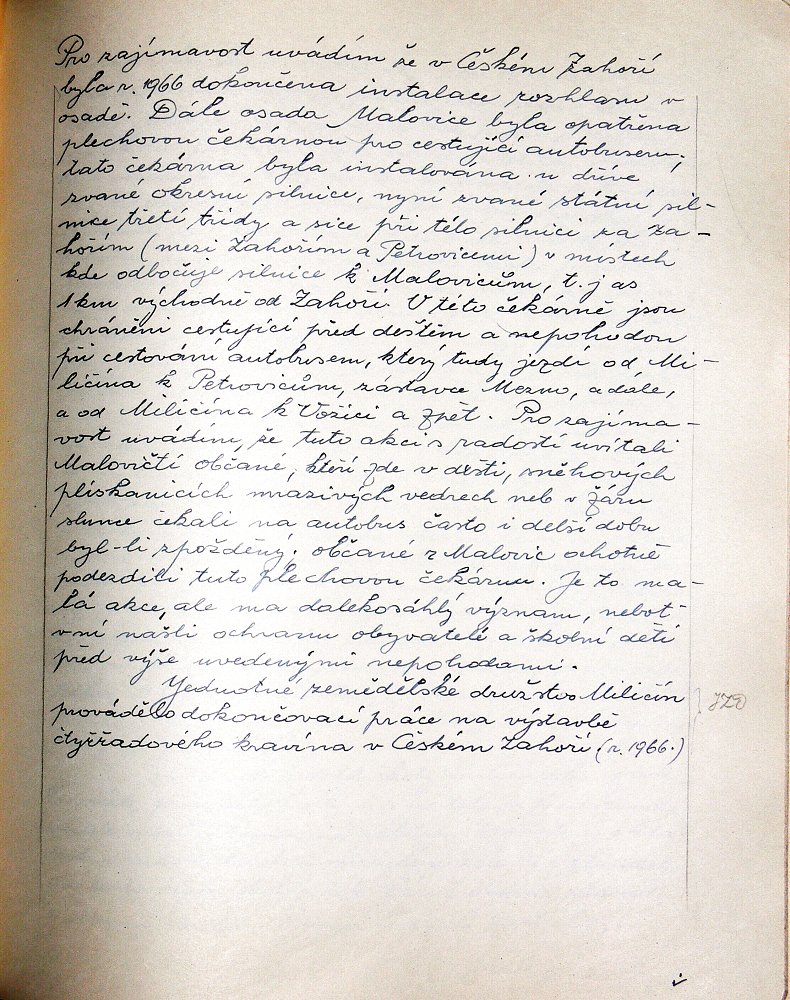 Pro zajímavost uvádím že v Českém Záhoří
byla r. 1966 dokončena instalace rozhlasu v
osadě. Dále osada Malovice byla opatřena
plechovou čekárnou pro cestující autobusem,
tato čekárna byla instalována u dříve
zvané okresní silnice, nyní zvané státní sil-
nice třetí třídy a sice při této silnici za Zá-
hořím (mezi Záhořím a Petrovicemi) v místech
kde odbočuje silnice k Malovicům, t. j as
1 km východně od Záhoří. V této čekárně jsou
chráněni cestující před deštěm a nepohodou
při cestování autobusem, který tudy jezdí od Mi-
ličína k Petrovicům, zástavce Mezno, a dále,
a od Miličína k Vožici a zpět. Pro zajíma-
vost uvádím, že tuto akci s radostí uvítali
Malovičtí občané, kteří zde v dešti, sněhových
plískanicích mrazivých vedrech neb v žáru
slunce čekali na autobus často i delší dobu
byl-li zpožděný; občané z Malovic ochotně
podezdili tuto plechovou čekárnu. Je to ma-
lá akce, ale ma dalekosáhlý význam, neboť
v ní našli ochranu obyvatelé a školní děti
před výše uvedenými nepohodami.
Jednotné zemědělské družstvo Miličín
JZD
provádělo dokončovací práce na výstavbě
čtyřřadového kravína v Českém Záhoří (r. 1966.)